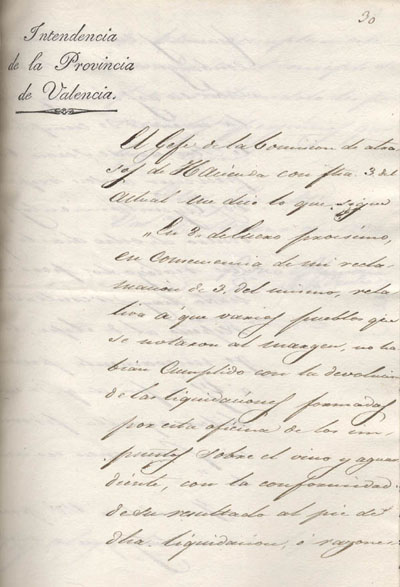 30
Intendencia
de la Provincia
de Valencia.
El Gefe de la Comision de atra
sos de Hacienda con fha. 3. del
actual me dice lo que sigue
"En de Enero proximo,
en consecuencia de mi recla
macion de 3. del mismo, rela
tiva á que varios pueblos que
se notaron al margen, no ha
bian cumplido con la devolucion
de las liquidaciones formadas
por esta oficina de los im
puestos sobre el vino y aguar
diente, con la conformidad
de su resultado al pie de
dha. liquidacion, ó razones